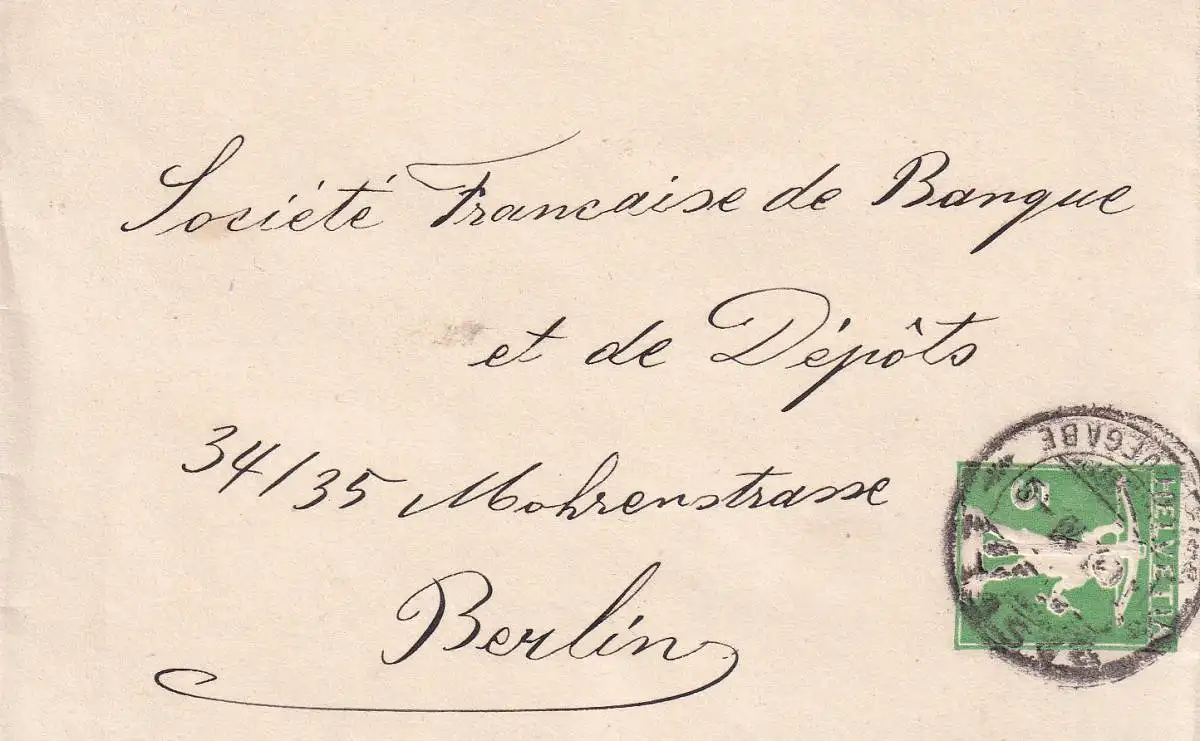 Société Francaise de Banque
et de Dépôts
34/35 Mohrenstrasse
Berlin
HELVETIA
5
BAS